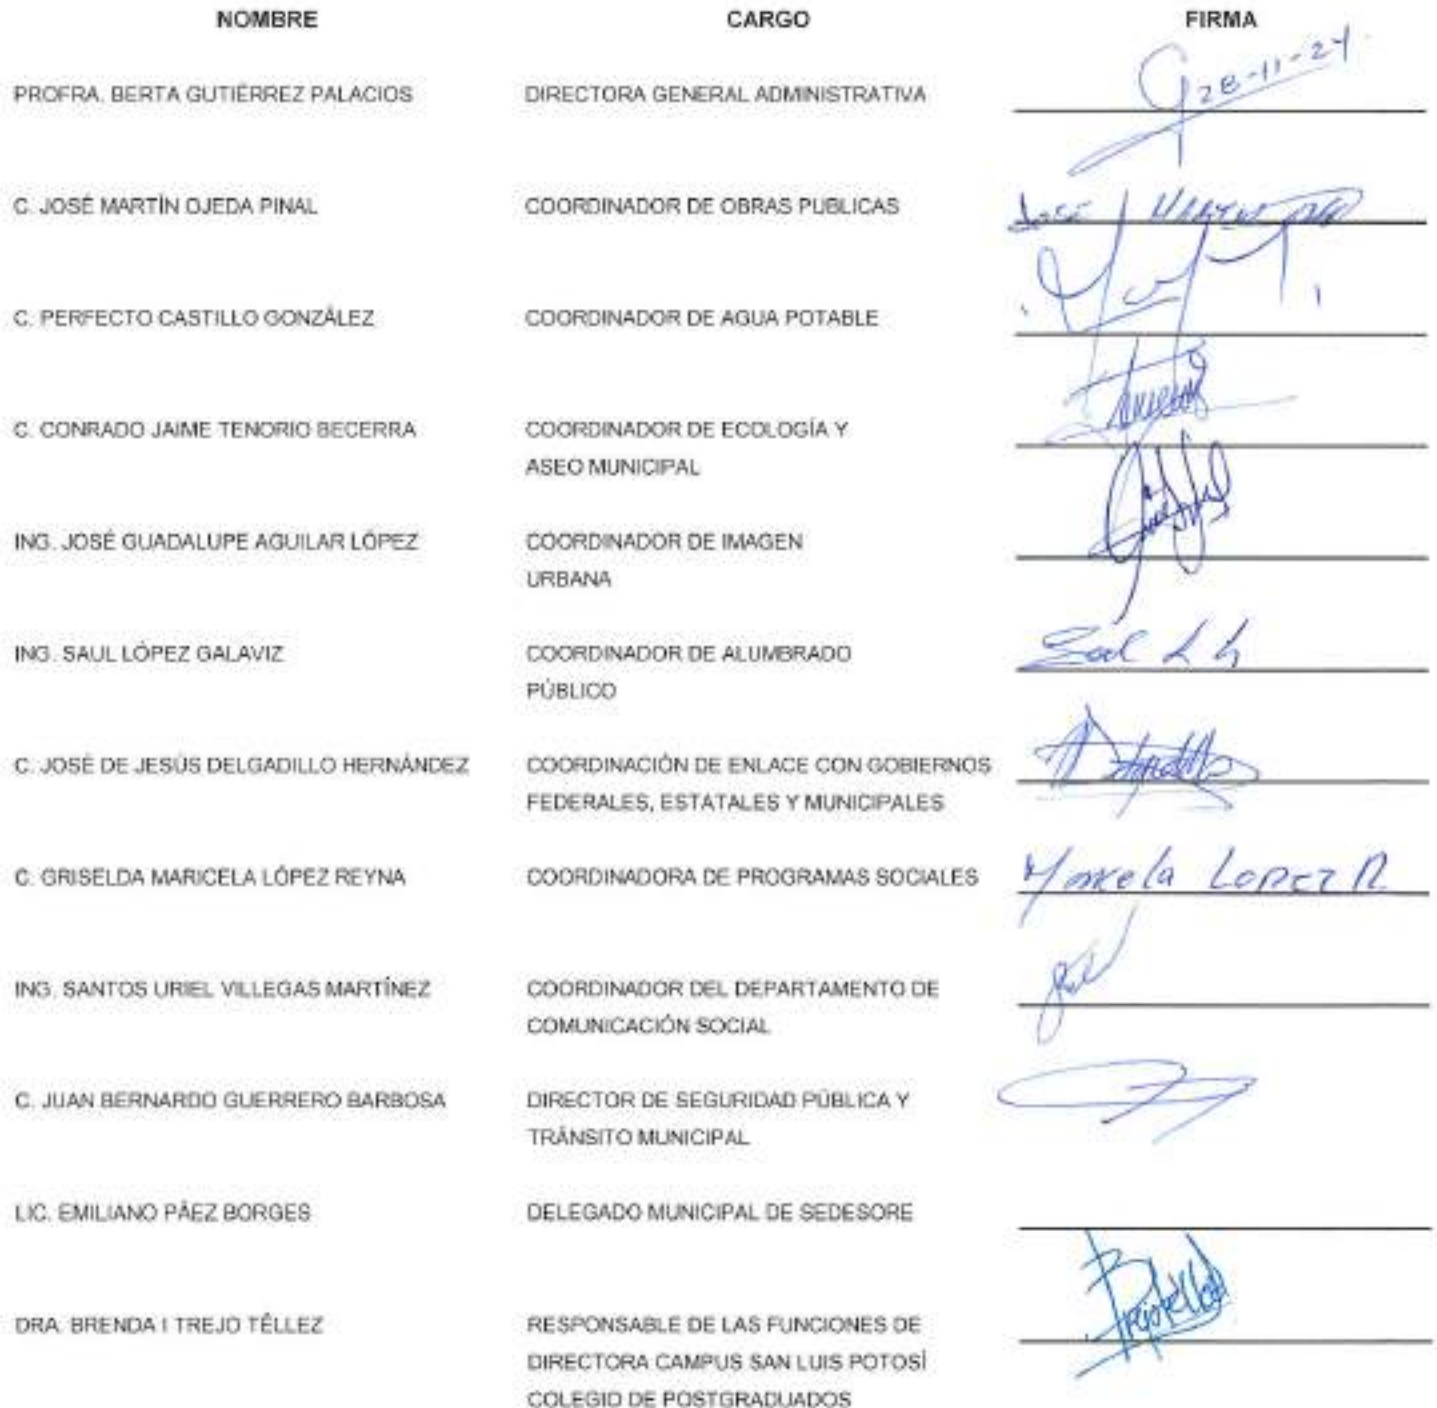 NOMBRE CARGO FIRMA
28-11-24
PROFRA. BERTA GUTIÉRREZ PALACIOS DIRECTORA GENERAL ADMINISTRATIVA
C. JOSÉ MARTÍN OJEDA PINAL COORDINADOR DE OBRAS PUBLICAS José
C. PERFECTO CASTILLO GONZÁLEZ COORDINADOR DE AGUA POTABLE
C. CONRADO JAIME TENORIO BECERRA COORDINADOR DE ECOLOGÍA Y
ASEO MUNICIPAL
ING. JOSÉ GUADALUPE AGUILAR LÓPEZ COORDINADOR DE IMAGEN
URBANA
ING. SAUL LÓPEZ GALAVIZ COORDINADOR DE ALUMBRADO
PÚBLICO
C. JOSÉ DE JESÚS DELGADILLO HERNÁNDEZ COORDINACIÓN DE ENLACE CON GOBIERNOS
FEDERALES, ESTATALES Y MUNICIPALES
C. GRISELDA MARICELA LÓPEZ REYNA COORDINADORA DE PROGRAMAS SOCIALES Lopez R
ING. SANTOS URIEL VILLEGAS MARTÍNEZ COORDINADOR DEL DEPARTAMENTO DE
COMUNICACIÓN SOCIAL
C. JUAN BERNARDO GUERRERO BARBOSA DIRECTOR DE SEGURIDAD PÚBLICA Y
TRÁNSITO MUNICIPAL
LIC. EMILIANO PÁEZ BORGES DELEGADO MUNICIPAL DE SEDESORE
DRA. BRENDA I TREJO TÉLLEZ RESPONSABLE DE LAS FUNCIONES DE
DIRECTORA CAMPUS SAN LUIS POTOSÍ
COLEGIO DE POSTGRADUADOS